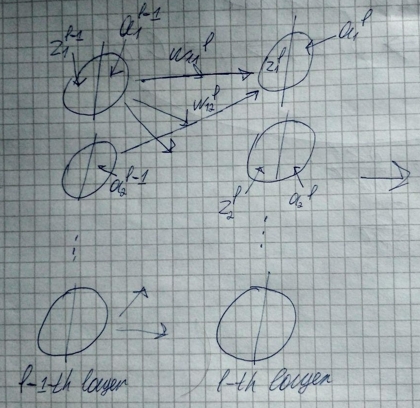 z₁ˡ⁻¹ a₁ˡ⁻¹ w₁₁ˡ z₁ˡ a₁ˡ
w₁₂ˡ
a₂ˡ⁻¹ z₂ˡ a₂ˡ
l-1-th layer l-th layer